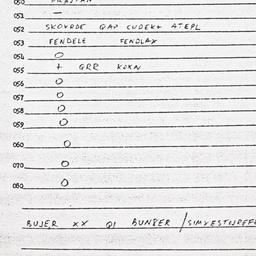 050
051 -
052 SKOVRDE GAP CUDEK+ ATEPL
053 FENDELE FENDLAX
054 O
055 + GRR KOXN
056 O
057 O
058 O
059 O
060 O
070 O
080 O
BUJER XX QI BUNPER /